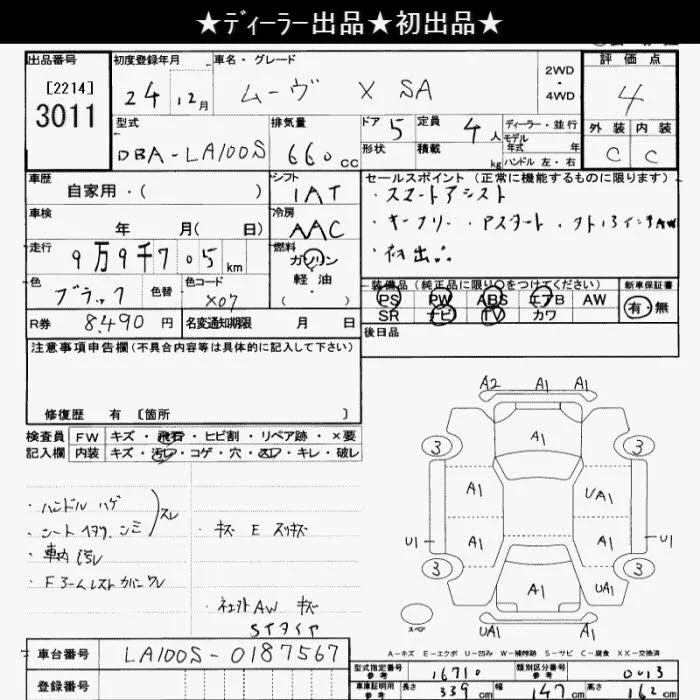 ★ディーラー出品★初出品★
出品番号
[2214]
3011
初度登録年月
24年 12月
車名・グレード
ムーヴ X SA
2WD
・
4WD
評価点
4
型式
DBA-LA100S
排気量
660 cc
ドア 5
定員 4 人
形状
積載 kg
ディーラー・並行
モデル
年式 年
ハンドル 左・右
外装 内装
C C
車歴
自家用・( )
シフト
IAT
セールスポイント(正常に機能するものに限ります)
・スマートアシスト
・キーフリー・アスタート・
・初出品
車検
年 月( 日)
冷房
AAC
走行
9万9千705km
燃料
ガソリン
・
軽油
( )
色
ブラック
色替
色コード
X07
装備品(純正品に限り○をつけてください)
PS PW ABS エアB AW
SR ナビ TV カワ
新車保証書
有・無
R券 8,490 円
名変通知期限 月 日
後日品
注意事項申告欄(不具合内容等は具体的に記入して下さい)
修復歴 有 [箇所 ]
検査員
記入欄
FW キズ・飛石・ヒビ割・リペア跡・×要
内装 キズ・汚レ・コゲ・穴・スレ・キレ・破レ
・ハンドル ハゲ
・シート スレ
・車内 汚レ
・キズ E スリキズ
AW キズ
Sタイヤ
A2 A1 A1
A1
3 3
A1 UA1
U1 A1 A1 U1
3 3
A1 UA1
UA1 A1
スペア
A-キズ E-エクボ U-凹み W-補修跡 S-サビ C-腐食 XX-交換済
車台番号
LA100S-0187567
登録番号
型式指定番号
参考
16710
類別区分番号
参考
0013
車庫証明用
参考
長さ 339 cm
幅 147 cm
高さ 162 cm